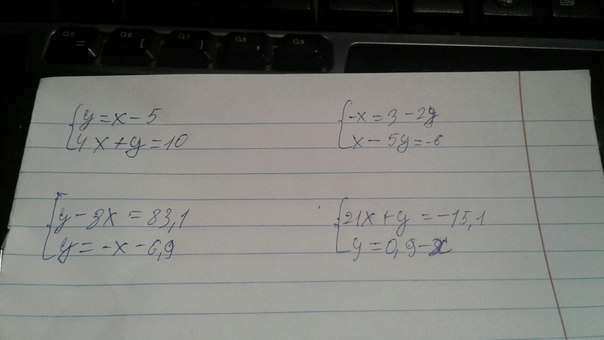 y = x - 5
4x + y = 10
-x = 3 - 2y
x - 5y = -6
y - 8x = 83,1
y = -x - 6,9
21x + y = -15,1
y = 0,9 - x